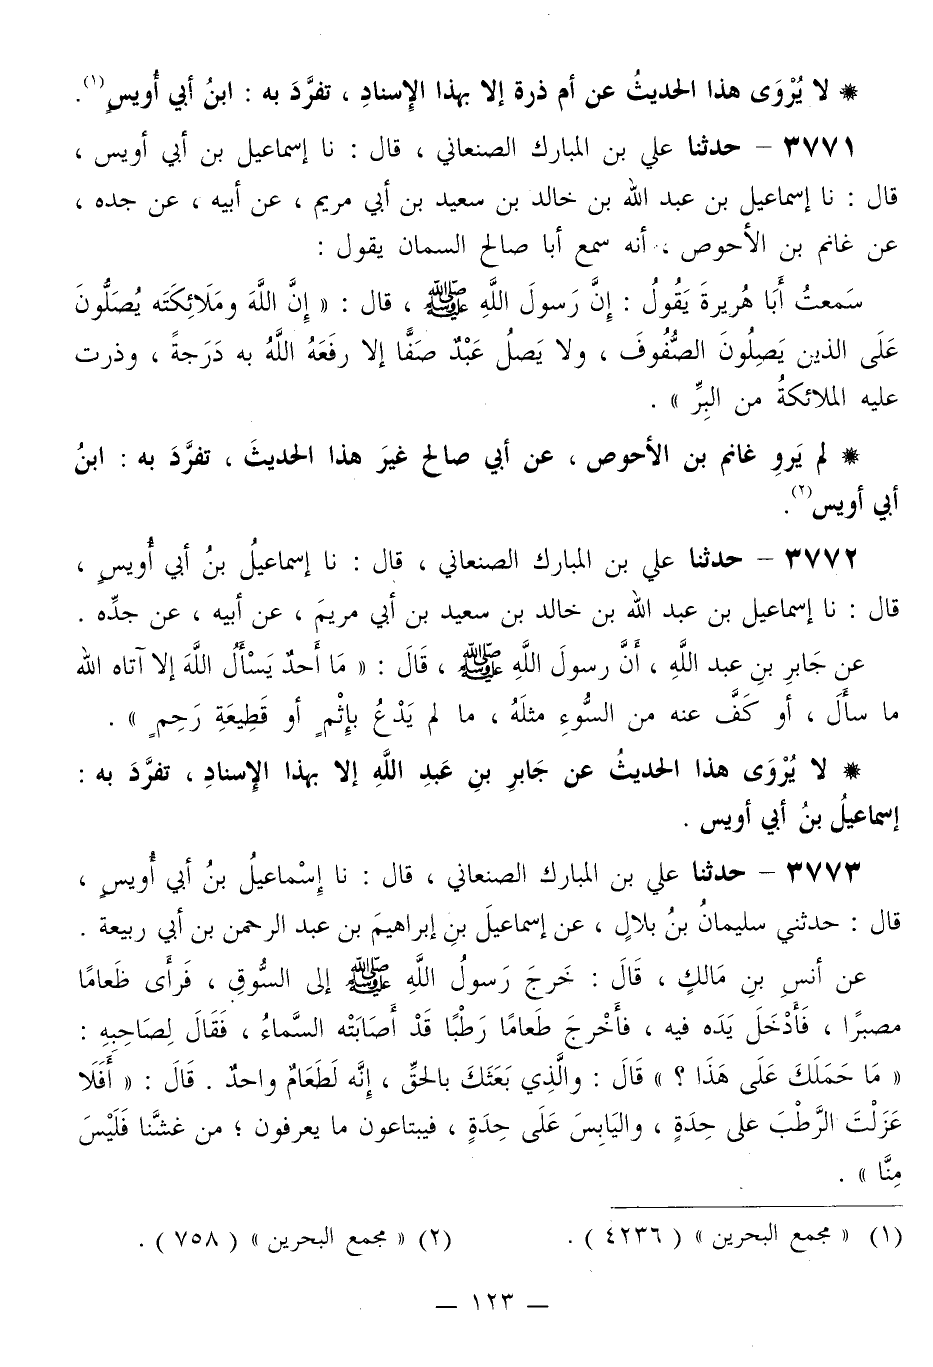 * لا يُرْوَى هذا الحديثُ عن أم ذرة إلا بهذا الإسنادِ ، تفرَّدَ به : ابنُ أبي أُويسٍ(١).
٣٧٧١ – حدثنا علي بن المبارك الصنعاني ، قال : نا إسماعيل بن أبي أويس ،
قال : نا إسماعيل بن عبد الله بن خالد بن سعيد بن أبي مريم ، عن أبيه ، عن جده ،
عن غانم بن الأحوص ، أنه سمع أبا صالح السمان يقول :
سَمعتُ أَبَا هُريرةَ يَقُولُ : إنَّ رَسولَ اللَّهِ ﷺ ، قال : « إنَّ اللَّهَ ومَلَائِكَتَه يُصَلُّونَ
عَلَى الذين يَصِلُونَ الصُّفُوفَ ، ولا يَصلُ عَبْدٌ صَفًّا إلا رفَعَهُ اللَّهُ به دَرَجةً ، وذرت
عليه الملائكةُ من البِرِّ » .
* لم يَروِ غانم بن الأحوص ، عن أبي صالح غيرَ هذا الحديثَ ، تفرَّدَ به : ابنُ
أبي أويس(٢).
٣٧٧٢ – حدثنا علي بن المبارك الصنعاني ، قال : نا إسماعيلُ بنُ أبي أُويسٍ ،
قال : نا إسماعيل بن عبد الله بن خالد بن سعيد بن أبي مريمَ ، عن أبيه ، عن جدِّه .
عن جَابرِ بنِ عبد اللَّهِ ، أنَّ رسولَ اللَّهِ ﷺ ، قَالَ : « مَا أَحدٌ يَسْأَلُ اللَّهَ إلا آتاه الله
ما سأَلَ ، أو كَفَّ عنه من السُّوءِ مثلَهُ ، ما لم يَدْعُ بإِثْمٍ أو قَطِيعَةِ رَحِمٍ » .
* لا يُرْوَى هذا الحديثُ عن جَابرِ بنِ عَبدِ اللَّهِ إلا بهذا الإسنادِ ، تفرَّدَ به :
إسماعيلُ بنُ أبي أويس .
٣٧٧٣ – حدثنا علي بن المبارك الصنعاني ، قال : نا إسْماعيلُ بنُ أبي أُويسٍ ،
قال : حدثني سليمانُ بنُ بلالٍ ، عن إسماعيلَ بنِ إبراهيمَ بن عبد الرحمن بن أبي ربيعة .
عن أنسِ بنِ مَالكٍ ، قَالَ : خَرجَ رَسولُ اللَّهِ ﷺ إلى السُّوقِ ، فَرأَى طَعامًا
مصبرًا ، فَأَدْخَلَ يَدَه فيه ، فأَخْرجَ طَعامًا رَطْبًا قَدْ أَصَابَتْه السَّماءُ ، فَقَالَ لِصَاحِبِهِ :
« مَا حَمَلَكَ عَلَى هَذَا ؟ » قَالَ : والَّذِي بَعَثَكَ بالحَقِّ ، إنَّه لَطَعَامٌ واحدٌ . قَالَ : « أَفَلَا
عَزَلْتَ الرَّطْبَ على حِدَةٍ ، واليَابِسَ عَلَى حِدَةٍ ، فيبتاعون ما يعرفون ؛ من غشَّنا فَلَيْسَ
مِنَّا » .
(١) « مجمع البحرين » ( ٤٢٣٦ ) . (٢) « مجمع البحرين » ( ٧٥٨ ) .
— ١٢٣ —